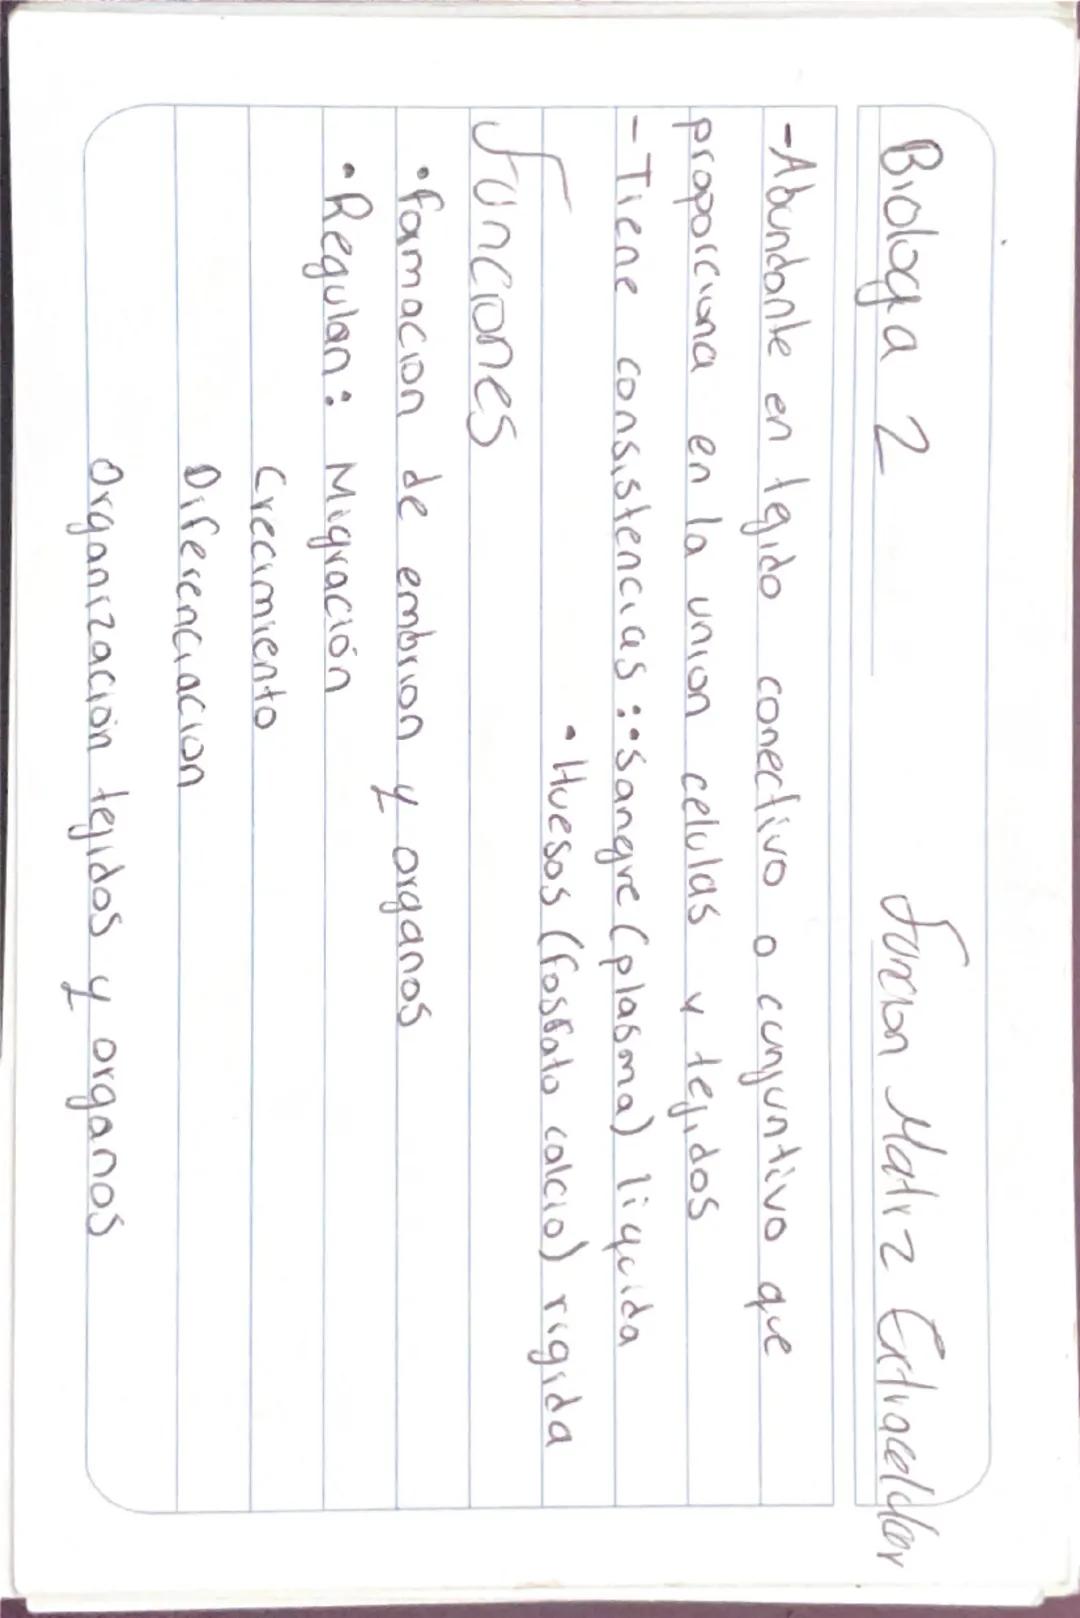 Biologia 2 Funcion Matriz Extracelular
-Abundante en tegido conectivo o conjuntivo que
proporciona en la union celulas y tejidos
-Tiene consistencias :•Sangre (plasma) liquida
•Huesos (fosfato calcio) rigida
Funciones
•formacion de embrion y organos
•Regulan: Migración
Crecimiento
Diferenciacion
Organización tejidos y organos